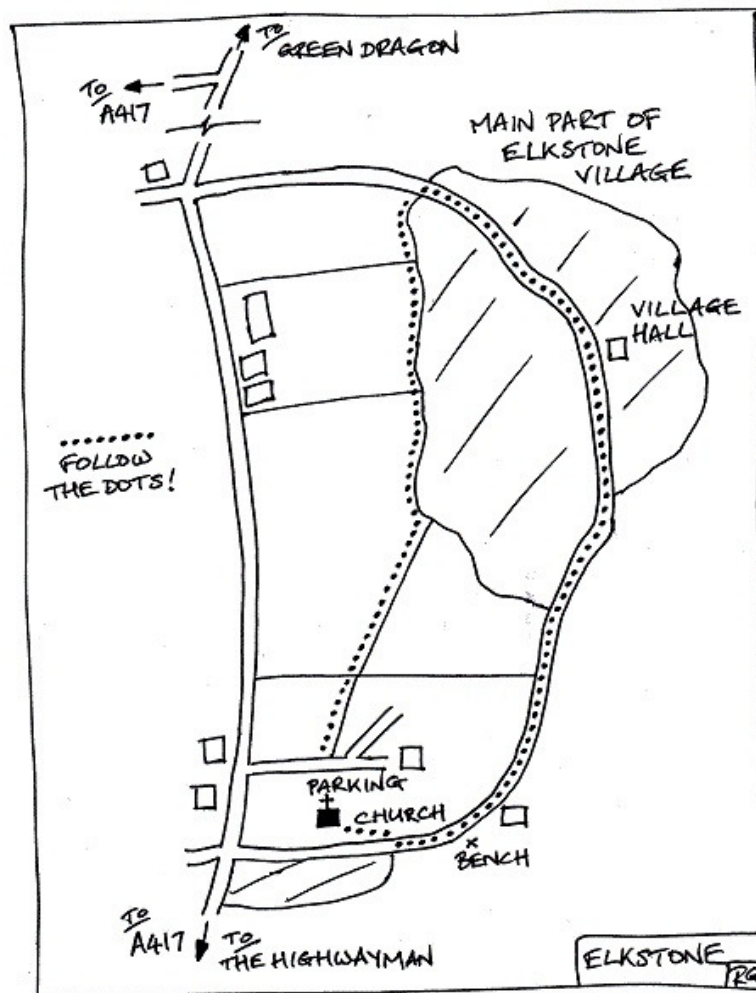 TO
GREEN DRAGON
TO
A417
MAIN PART OF
ELKSTONE
VILLAGE
VILLAGE
HALL
FOLLOW
THE DOTS!
PARKING
CHURCH
BENCH
TO
A417
TO
THE HIGHWAYMAN
ELKSTONE
RG